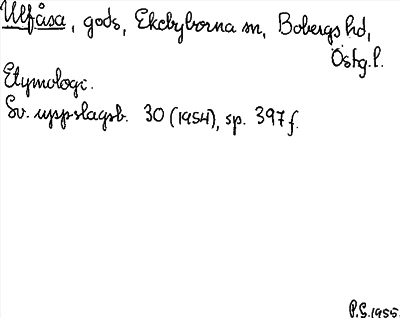 Ulfåsa, gods, Ekebyborna sn, Bobergs hd,
Östg.l.
Etymologi.
Sv. uppslagsb. 30 (1954), sp. 397 f.
P.G. 1955.